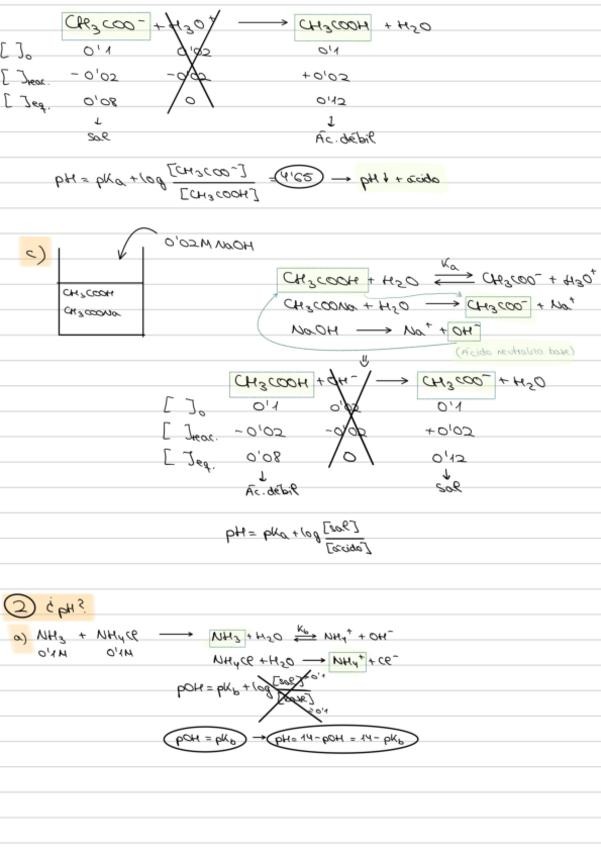 CH₃COO⁻ + H₃O⁺ → CH₃COOH + H₂O
[ ]₀ 0'1 0'02 0'1
[ ]reac. -0'02 -0'02 +0'02
[ ]eq. 0'08 0 0'12
↓ ↓
Sal Ác. débil
pH = pKa + log [CH₃COO⁻]/[CH₃COOH] = 4'65 → pH ↓ + ácido
c) 0'02M NaOH
CH₃COOH
CH₃COONa
CH₃COOH + H₂O ⇌ Ka CH₃COO⁻ + H₃O⁺
CH₃COONa + H₂O → CH₃COO⁻ + Na⁺
NaOH → Na⁺ + OH⁻
(Ácido neutraliza base)
⇓
CH₃COOH + OH⁻ → CH₃COO⁻ + H₂O
[ ]₀ 0'1 0'02 0'1
[ ]reac. -0'02 -0'02 +0'02
[ ]eq. 0'08 0 0'12
↓ ↓
Ác. débil Sal
pH = pKa + log [sal]/[ácido]
2 ¿pH?
a) NH₃ + NH₄Cl → NH₃ + H₂O ⇌ Kb NH₄⁺ + OH⁻
0'1M 0'1M
NH₄Cl + H₂O → NH₄⁺ + Cl⁻
pOH = pKb + log [sal]=0'1/[base]=0'1
pOH = pKb → pH = 14 - pOH = 14 - pKb